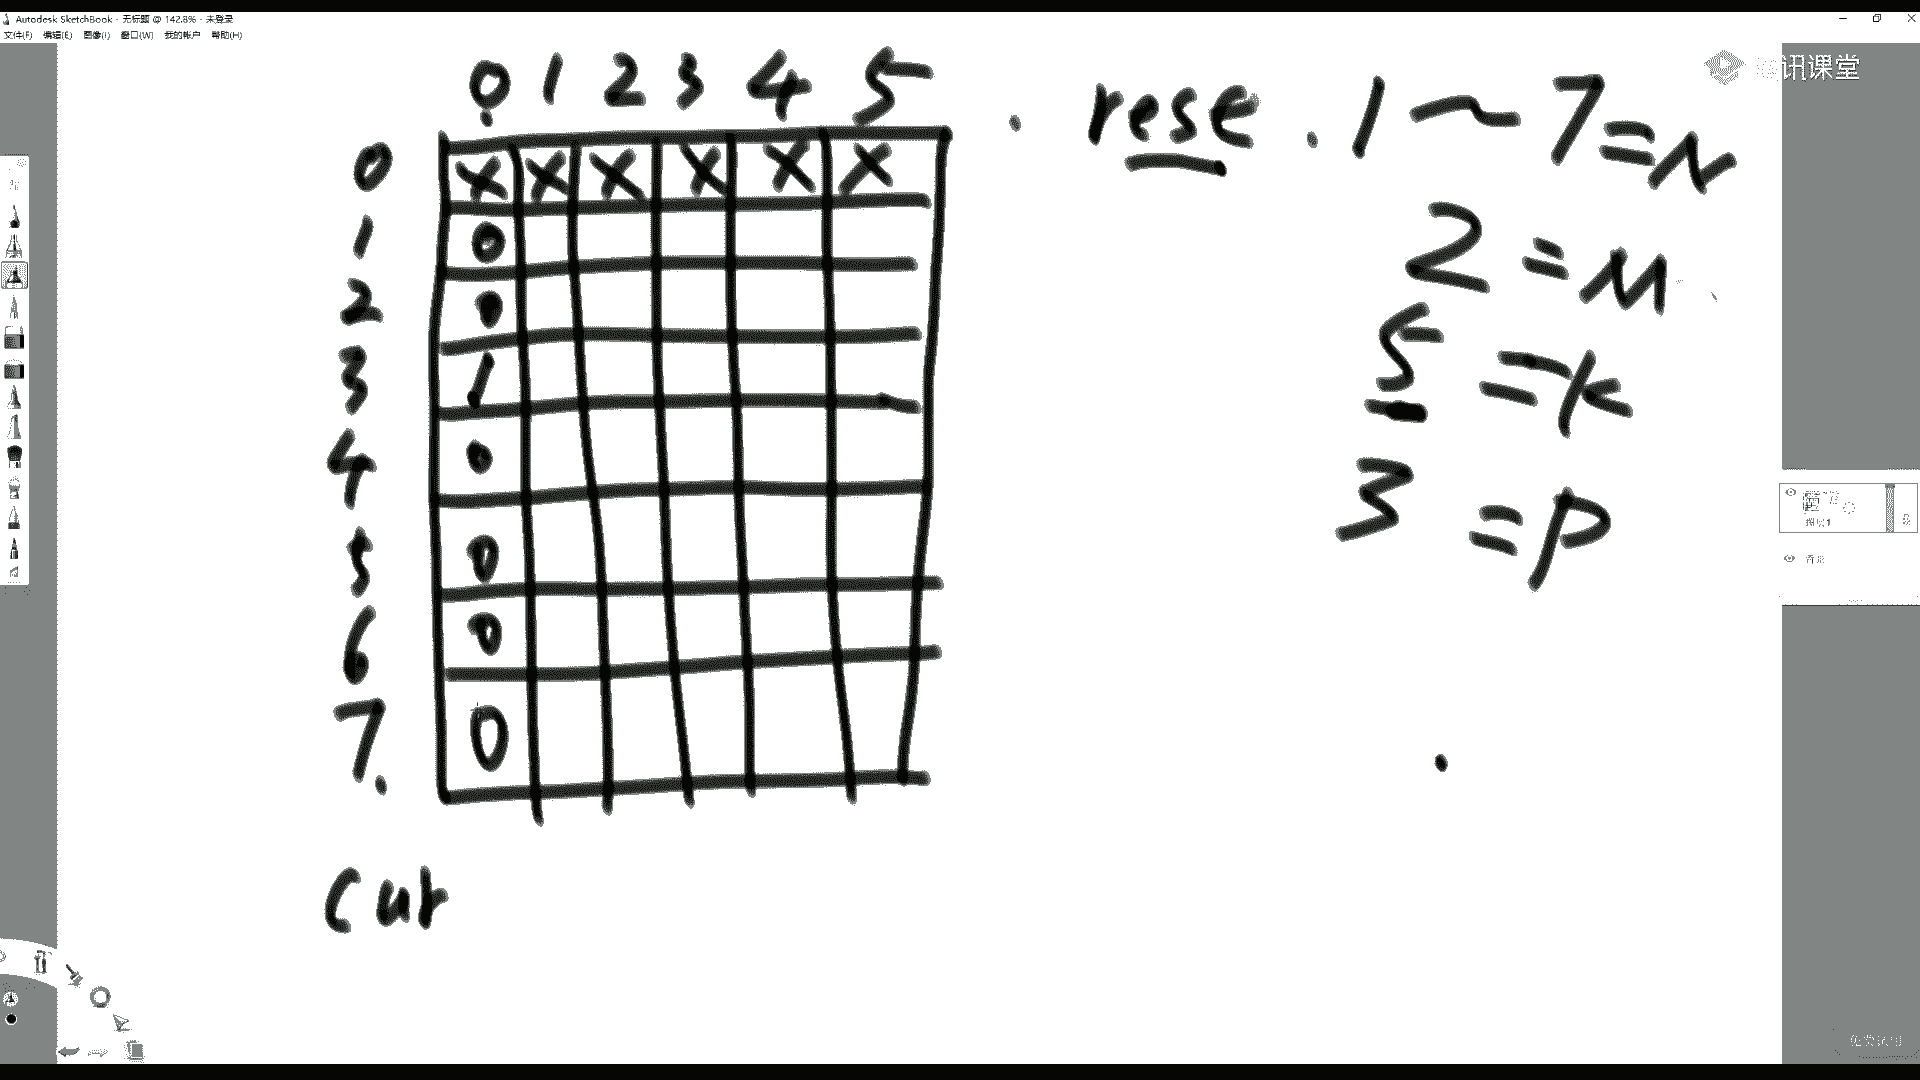 Autodesk SketchBook - 无标题 @ 142.8% - 未登录
文件(F) 编辑(E) 图像(I) 窗口(W) 我的帐户 帮助(H)
讯课堂
0 1 2 3 4 5 . rese . 1 ~ 7 = N
0 X X X X X X
1 0
2 0
3 1
4 0
5 0
6 0
7. 0
2 = M
5 = K
3 = P
cur
图层1
背景